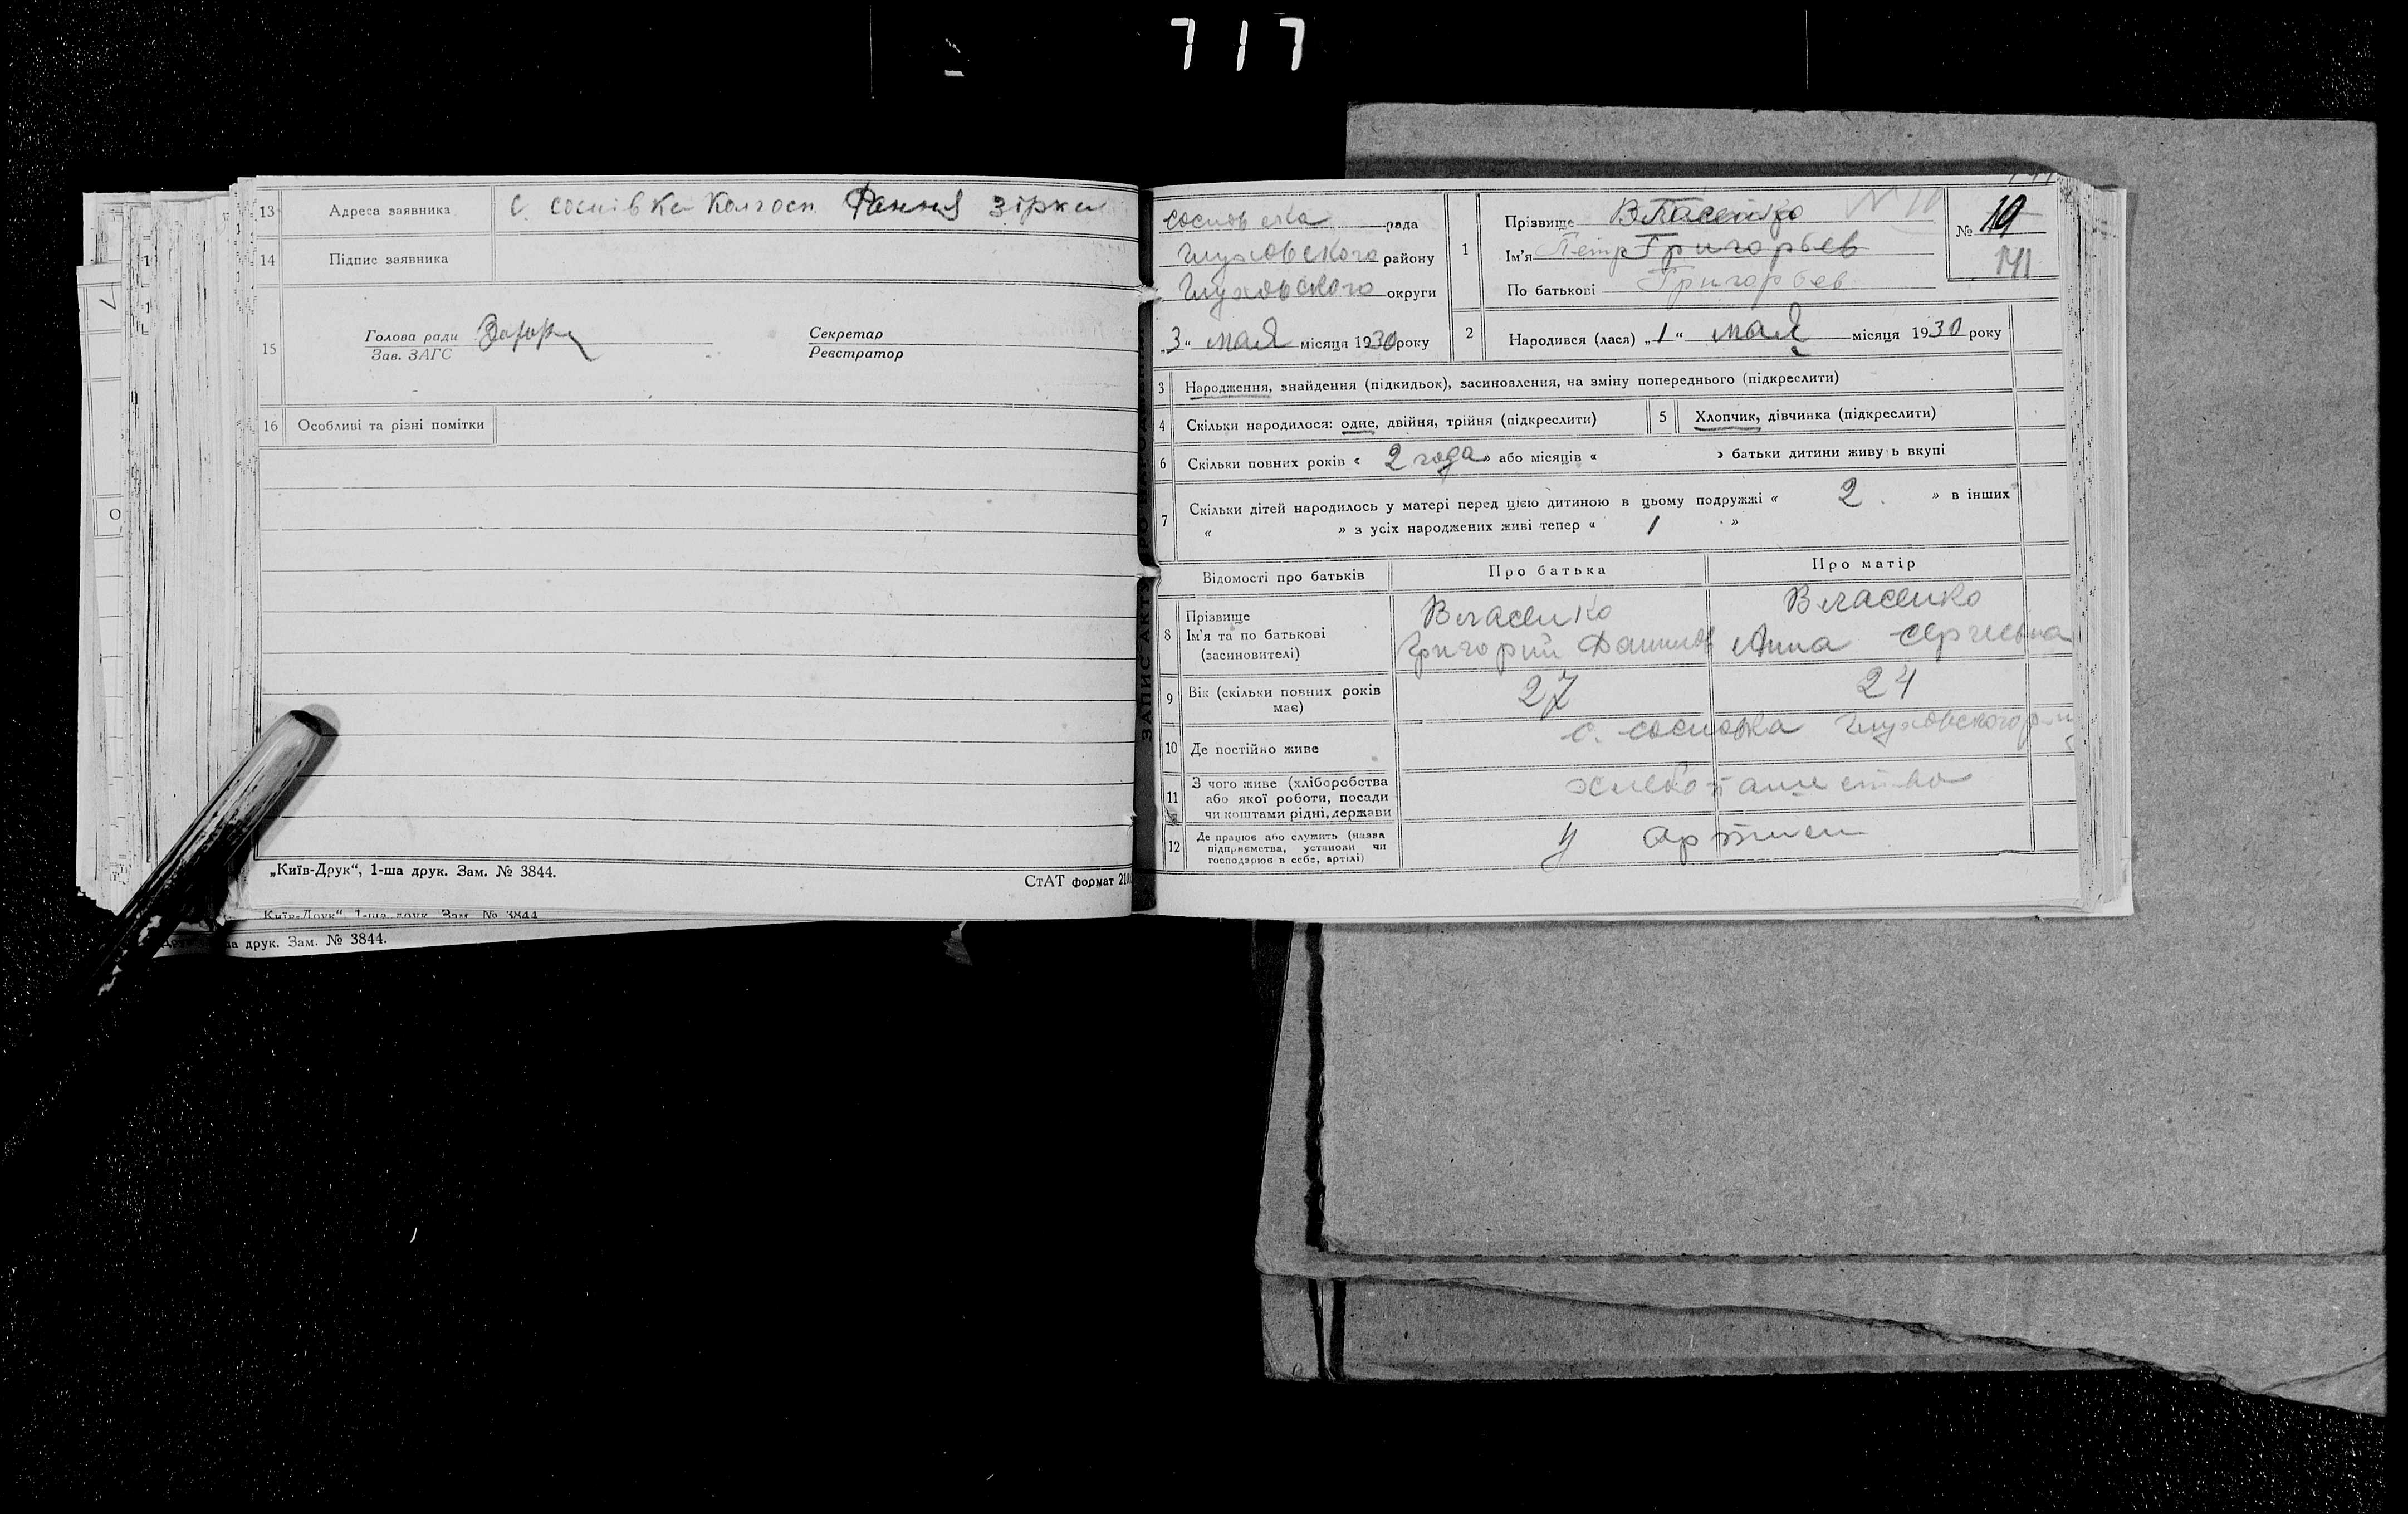 717
13 Адреса заявника С. соснівка колгосп Рання зірка
14 Підпис заявника
15 Голова ради
Зав. ЗАГС
Секретар
Реєстратор
16 Особливі та різні помітки
„Київ-Друк“, 1-ша друк. Зам. № 3844.
СтАТ формат 210
Київ-Друк“ 1-ша друк. Зам. № 3844
друк. Зам. № 3844.
ЗАПИС АКТУ ПРО
сосновска рада
Глуховского району
Глуховского округи
„3“ мая місяця 1930 року
1 Прізвище Власенко
Ім'я Петр Григорьев
По батькові Григорьев
№ 10
141
2 Народився (лася) „1“ мая місяця 1930 року
3 Народження, знайдення (підкидьок), засиновлення, на зміну попереднього (підкреслити)
4 Скільки народилося: одне, двійня, трійня (підкреслити) 5 Хлопчик, дівчинка (підкреслити)
6 Скільки повних років « 2 года » або місяців « » батьки дитини живуть вкупі
7 Скільки дітей народилось у матері перед цією дитиною в цьому подружжі « 2 » в інших
« » з усіх народжених живі тепер « 1 »
Відомості про батьків Про батька Про матір
8 Прізвище
Ім'я та по батькові
(засиновителі)
Власенко
Григорий Данилов
Власенко
Анна Сергиевна
9 Вік (скільки повних років
має)
27 24
10 Де постійно живе с. сосновка Глуховского
11 З чого живе (хліборобства
або якої роботи, посади
чи коштами рідні, держави
хлебопашество
12 Де працює або служить (назва
підприємства, установи чи
господарює в себе, артілі)
у артили